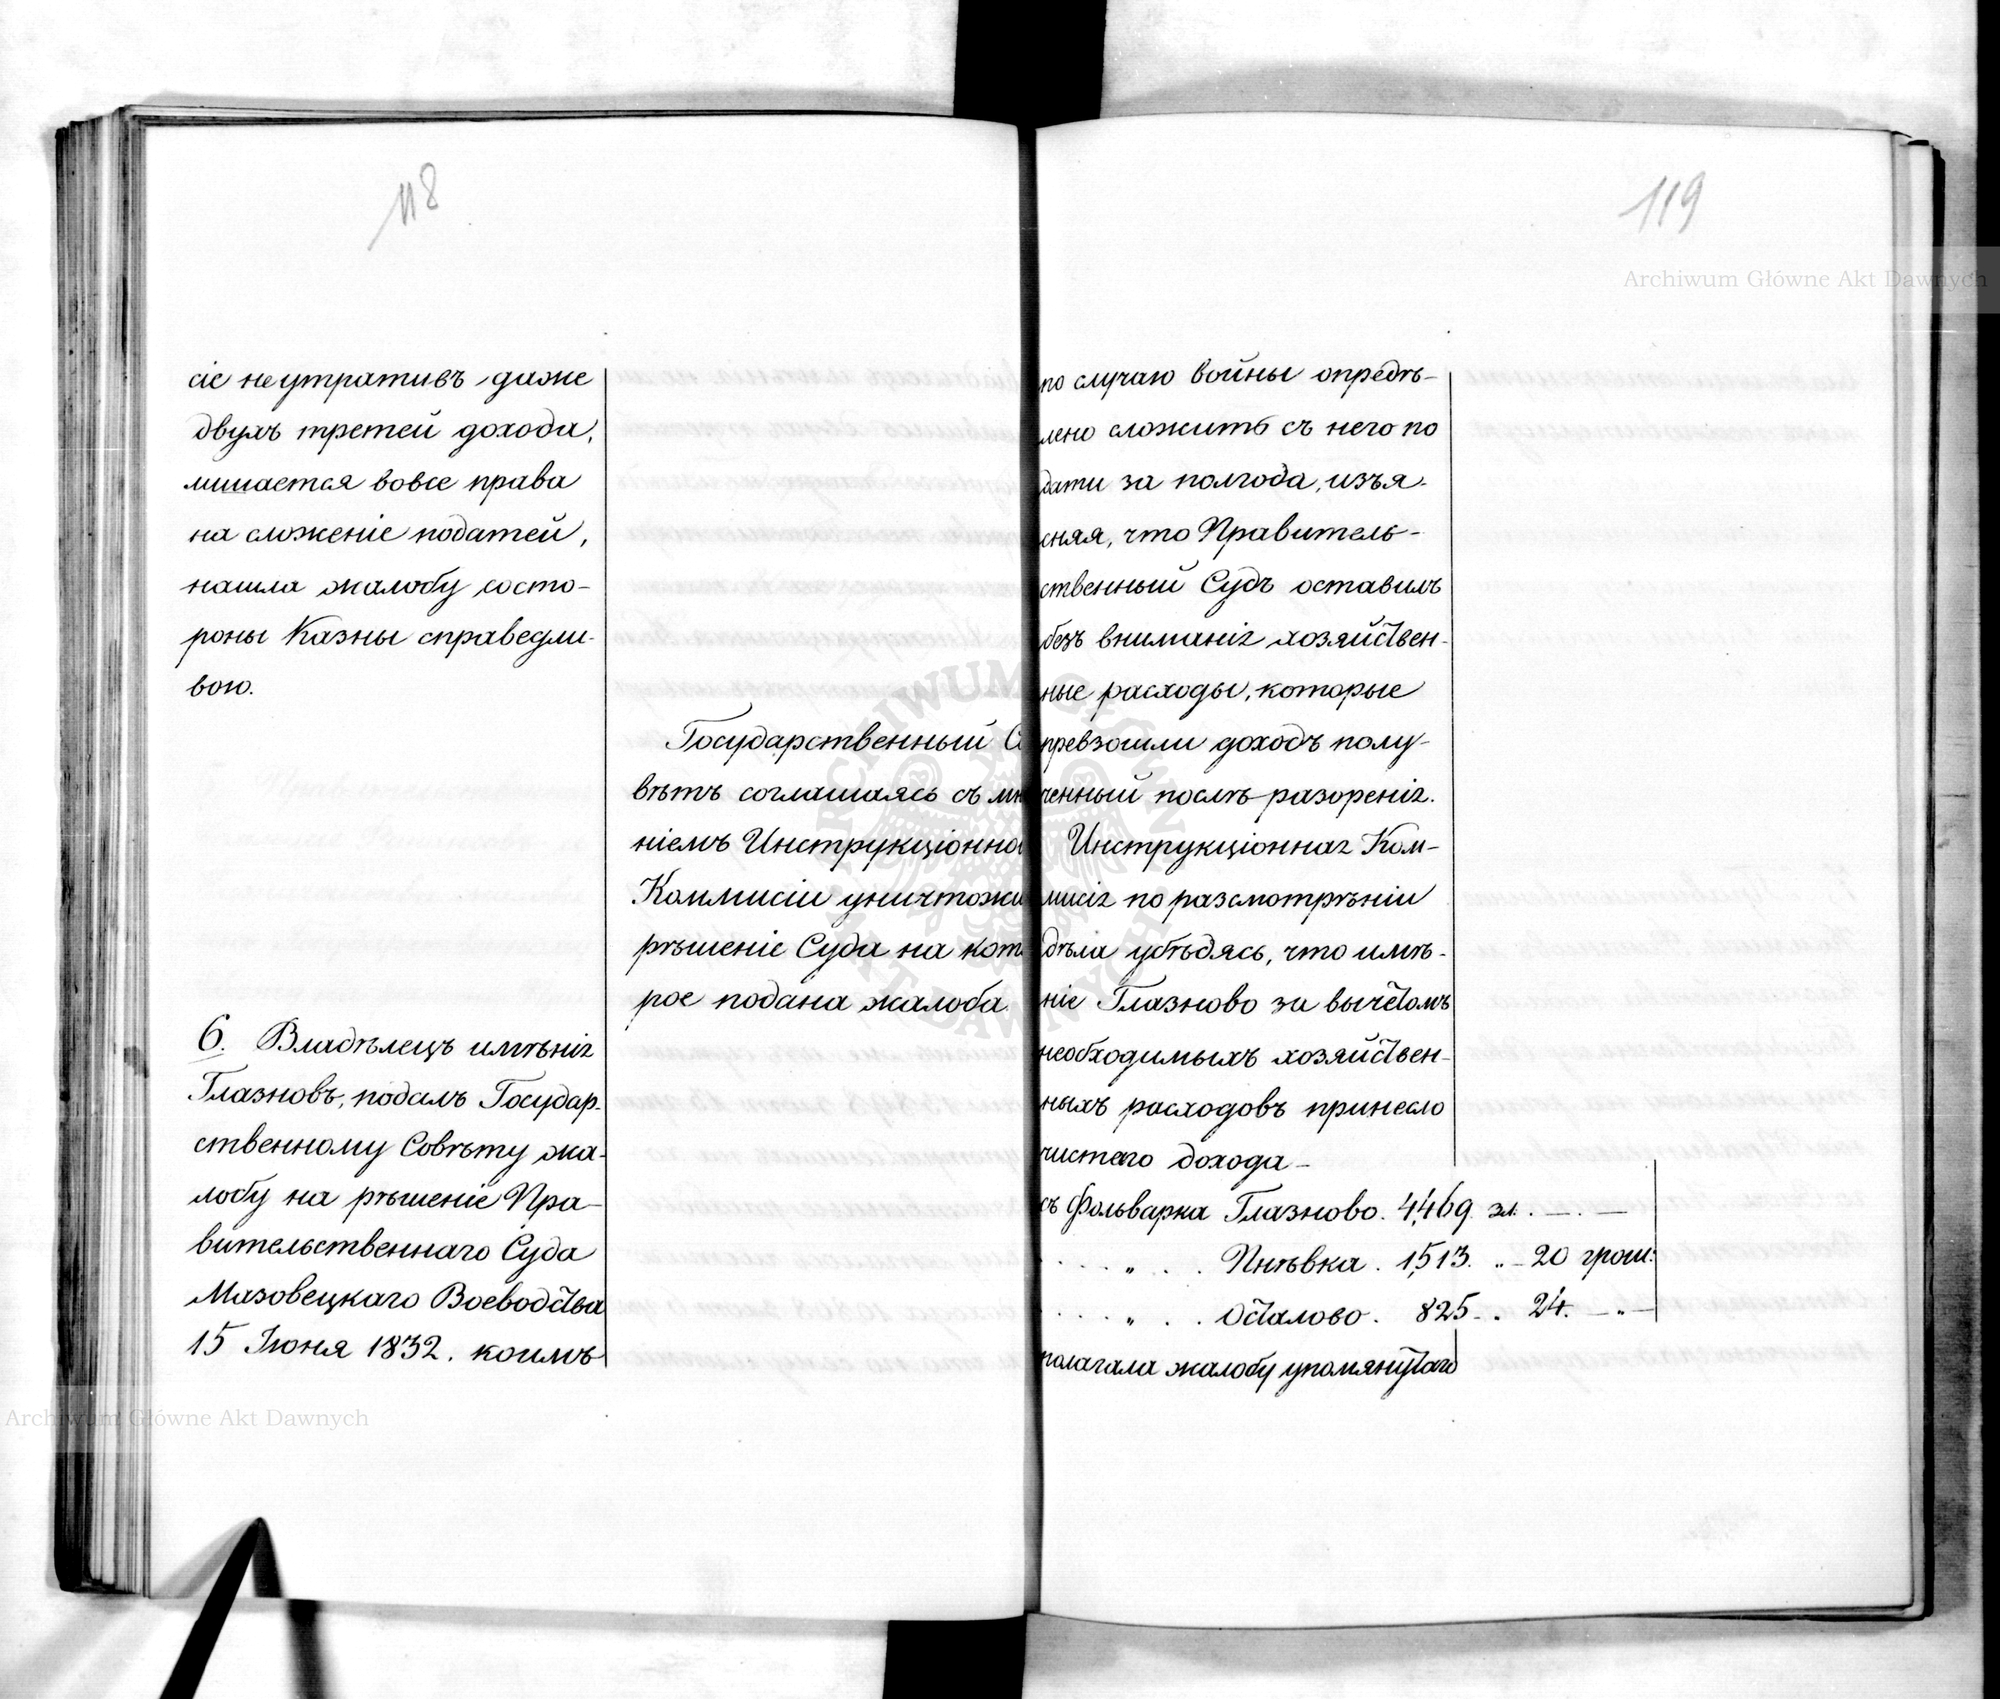 118
сіе неутративъ даже
двухъ третей дохода,
лишается вовсе права
на сложеніе податей,
нашла жалобу состо-
роны Казны справедли-
вою.
Государственный С
вѣтъ соглашаясь съ мн
ніемъ Инструкціонно
Коммисіи уничтожи
рѣшеніе Суда на кото
рое подана жалоба
6. Владѣлецъ имѣнія
Глазновъ, подалъ Государ-
ственному Совѣту жа-
лобу на рѣшеніе Пра-
вительственнаго Суда
Мазовецкаго Воеводства
15 Іюня 1832. коимъ
119
по случаю войны опредѣ-
лено сложить съ него по
дати за полгода, изъя-
сняя, что Правитель-
ственный Судъ оставилъ
безъ вниманія хозяйствен-
ные расходы, которые
превзошли доходъ полу-
ченный послѣ разоренія.
Инструкціонная Ком-
мисія по разсмотрѣніи
дѣла убѣдясь, что имѣ-
ніе Глазново за вычетомъ
необходимыхъ хозяйствен-
ныхъ расходовъ принесло
чистаго дохода -
съ Фольварка Глазново. 4,469 зл. — . —
. . . " . . Пнѣвка . 1,513. " - 20 грош:
. . . " . . Осталово . 825 - . 24. — " —
полагала жалобу упомянутаго
Archiwum Główne Akt Dawnych
Archiwum Główne Akt Dawnych
ARCHIWUM GŁÓWNE AKT DAWNYCH